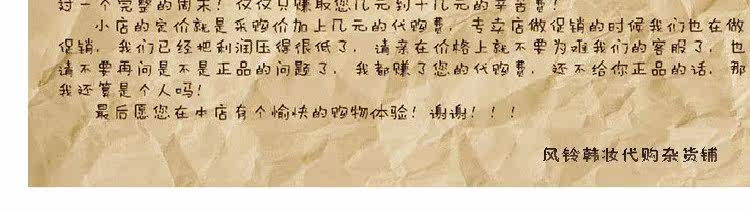 过一个完整的周末！仅仅只赚取您几元到十几元的辛苦费！
小店的定价就是采购价加上几元的代购费，专卖店做促销的时候我们也在做
促销，我们已经把利润压得很低了，请亲在价格上就不要为难我们的客服了，也
请不要再问是不是正品的问题了，我都赚了您的代购费，还不给你正品的话，那
我还算是个人吗！
最后愿您在本店有个愉快的购物体验！谢谢！！！
风铃韩妆代购杂货铺